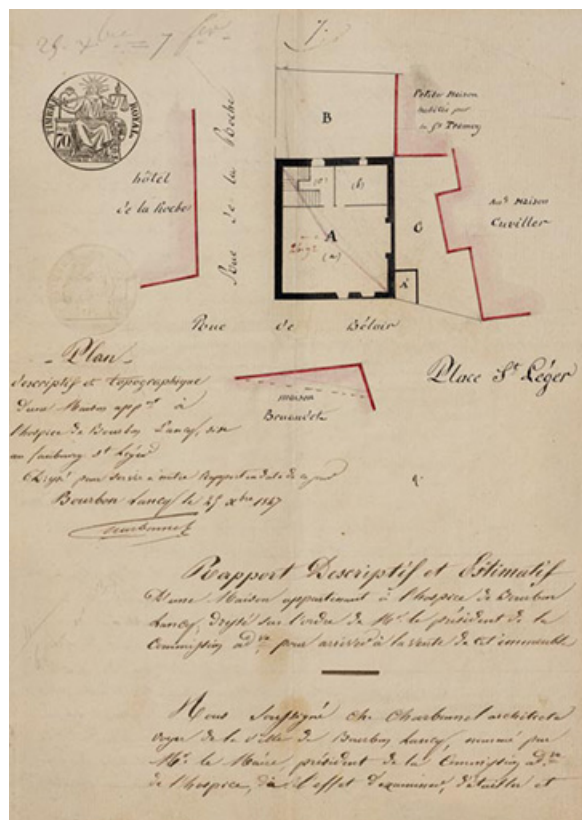 25 xbre = 7
TIMBRE ROYAL
70
B
Petite Maison
habitée par
le Sr Tremey
hôtel
de la Roche
Rue de la Roche
(c)
(b)
A
(a)
C
Anc Maison
Cuviller
A'
Rue de Bélair
Plan
descriptif et topographique
D'une Maison appt à
l'hospice de Bourbon Lancy, sise
au faubourg St Léger
maison
Place St Léger
Dressé pour servir à notre Rapport en date de ce jour
Bourbon Lancy le 25 xbre 1847
Charbonnel
Rapport Descriptif et Estimatif
D'une Maison appartenant à l'hospice de Bourbon
Lancy, dressé sur l'ordre de Mr. le président de la
Commission adve pour arriver à la vente de cet immeuble
Nous soussigné Ch. Charbonnel architecte
voyer de la ville de Bourbon Lancy, nommé par
Mr. le Maire, président de la Commission adve
de l'hospice, à l'effet d'examiner, détailler et